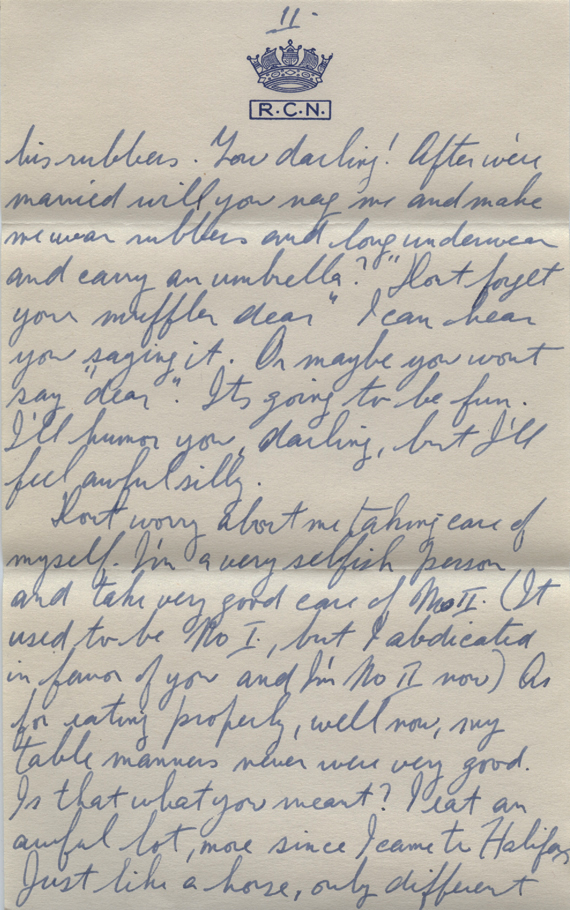 11.
R.C.N.
his rubbers. You darling! After we're
married will you nag me and make
me wear rubbers and long underwear
and carry an umbrella? "Dont forget
your muffler dear" I can hear
you saying it. Or maybe you wont
say "dear". Its going to be fun.
I'll humor you, darling, but I'll
feel awful silly.
Dont worry about me taking care of
myself. I'm a very selfish person
and take very good care of No II. (It
used to be No I., but I abdicated
in favor of you and I'm No II now) As
for eating properly, well now, my
table manners never were very good.
Is that what you meant? I eat an
awful lot, more since I came to Halifax
Just like a horse, only different